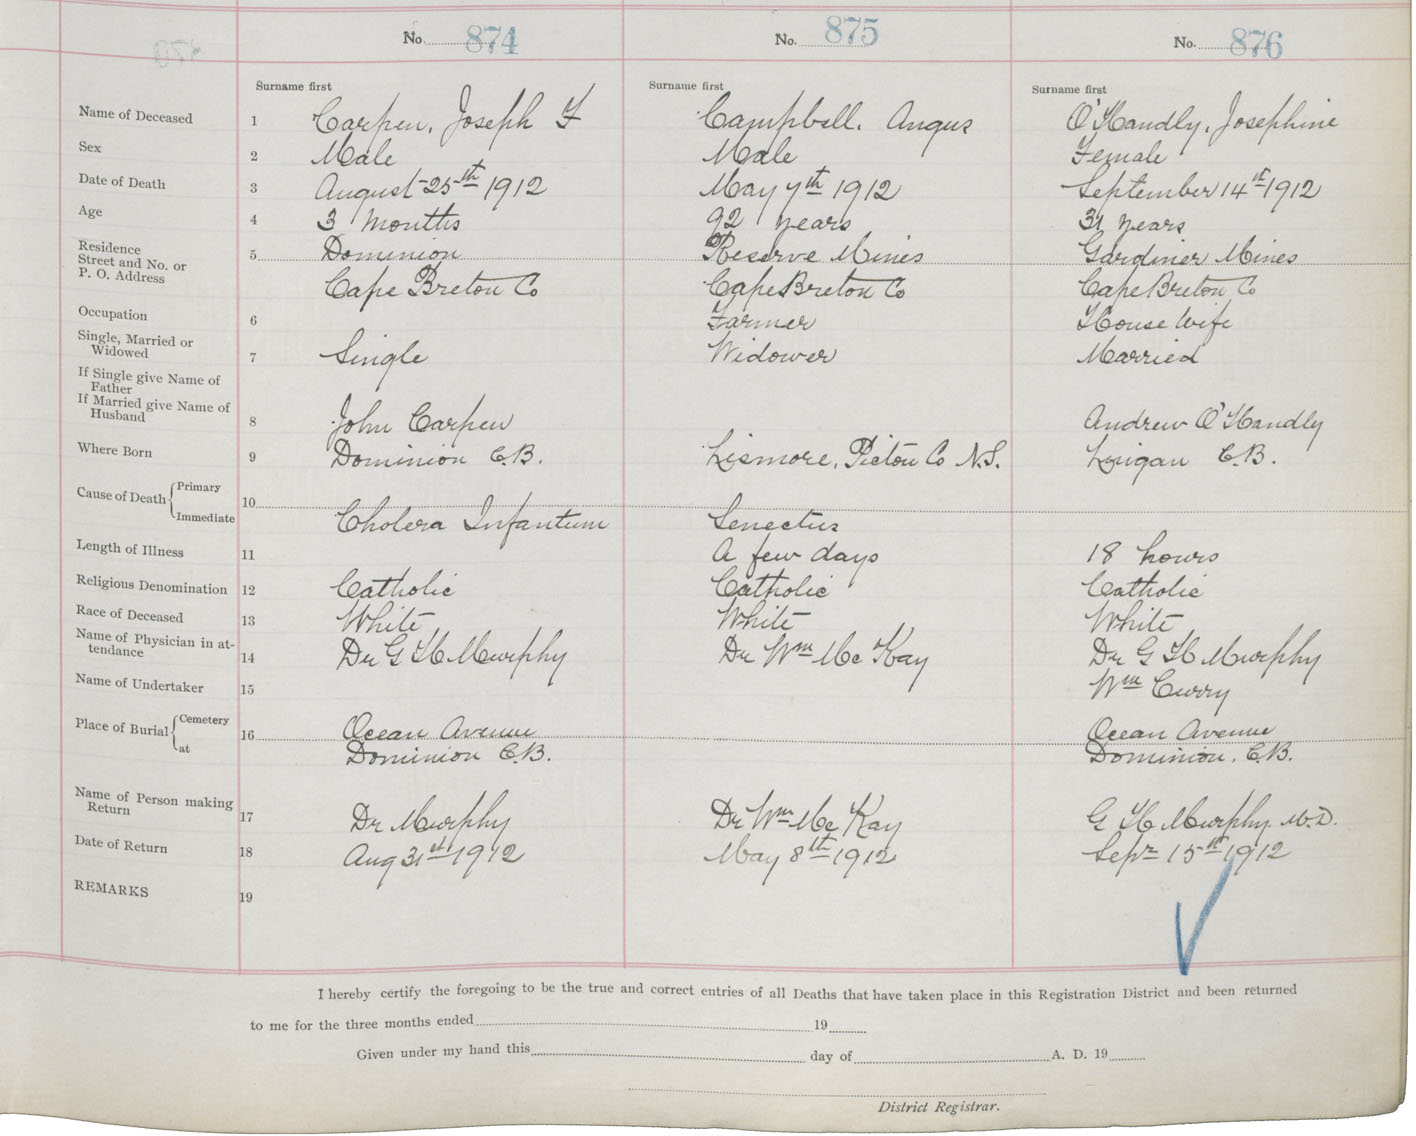 No. 874 No. 875 No. 876
Surname first Surname first Surname first
Name of Deceased 1 Carpen, Joseph F Campbell. Angus O'Handly, Josephine
Sex 2 Male Male Female
Date of Death 3 August 25th 1912 May 7th 1912 September 14th 1912
Age 4 3 months 92 years 31 years
Residence
Street and No. or 5 Dominion Reserve Mines Gardiner Mines
P. O. Address Cape Breton Co Cape Breton Co Cape Breton Co
Occupation 6 Farmer House Wife
Single, Married or
Widowed 7 Single Widower Married
If Single give Name of
Father
If Married give Name of
Husband 8 John Carpen Andrew O'Handly
Where Born 9 Dominion C.B. Lismore, Pictou Co N.S. Lingan C.B.
Cause of Death Primary 10
Immediate Cholera Infantum Senectus
Length of Illness 11 A few days 18 hours
Religious Denomination 12 Catholic Catholic Catholic
Race of Deceased 13 White White White
Name of Physician in at-
tendance 14 Dr G H Murphy Dr Wm McKay Dr G H Murphy
Name of Undertaker 15 Wm Curry
Place of Burial Cemetery 16 Ocean Avenue Ocean Avenue
at Dominion C.B. Dominion, C.B.
Name of Person making
Return 17 Dr Murphy Dr Wm McKay G H Murphy. M.D.
Date of Return 18 Aug 31st 1912 May 8th 1912 Sepr 15th 1912
REMARKS 19
I hereby certify the foregoing to be the true and correct entries of all Deaths that have taken place in this Registration District and been returned
to me for the three months ended 19
Given under my hand this day of A. D. 19
District Registrar.